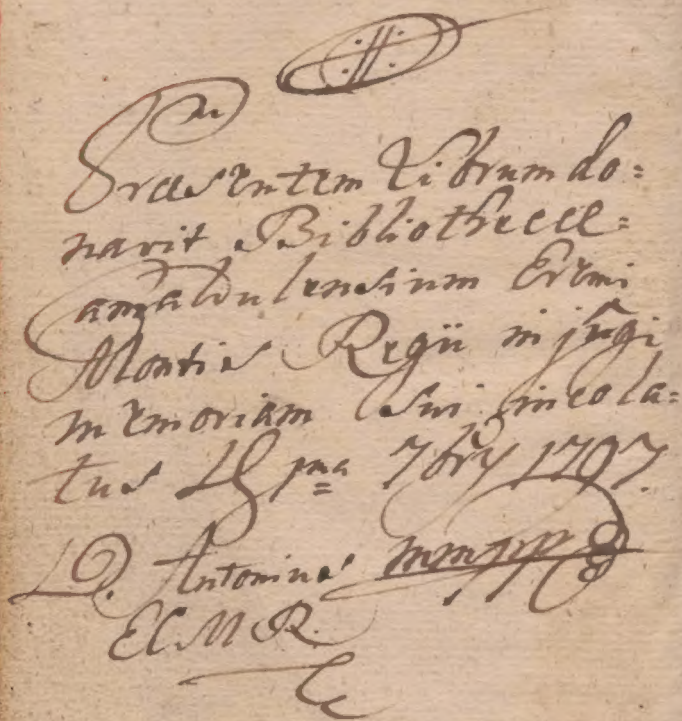 Præsentem Librum do=
navit Bibliothecæ C=
amaldulensium Eremi
Montis Regii in jugi
memoriam Sui incola=
tus 1ma 7bry 1797.
D. Antonius mmpp
E C M R.